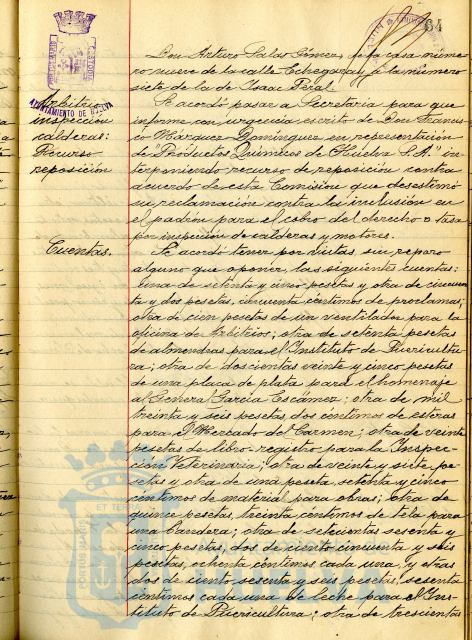 64
Don Arturo Salas Gómez, de la casa núme-
ro nueve de la calle Echegaray, a la número
siete de la de Isaac Peral.
AYUNTAMIENTO DE HUELVA
Arbitrio
inspección
calderas:
Recurso
reposición
Se acordó pasar a Secretaría para que
informe con urgencia escrito de Don Francis-
co Márquez Domínguez en representación
de "Productos Químicos de Huelva S.A." in-
terponiendo recurso de reposición contra
acuerdo de esta Comisión que desestimó
su reclamación contra la inclusión en
el padrón para el cobro del derecho o tasa
por inspección de calderas y motores.
Cuentas.
Se acordó tener por vistas, sin reparo
alguno que oponer, las siguientes cuentas:
una de setenta y cinco pesetas y otra de cincuen-
ta y dos pesetas, cincuenta céntimos de proclamas;
otra de cien pesetas de un ventilador para la
oficina de Arbitrios; otra de setenta pesetas
de almendras para el Instituto de Puericultu-
ra; otra de doscientas veinte y cinco pesetas
de una placa de plata para el homenaje
al General García Escámez; otra de mil
treinta y seis pesetas, dos céntimos de esteras
para el Mercado del Carmen; otra de veinte
pesetas de libro-registro para la Inspec-
ción Veterinaria; otra de veinte y siete pe-
setas y otra de una peseta, setenta y cinco
céntimos de material para obras; otra de
quince pesetas, treinta céntimos de tela para
una bandera; otra de setecientas sesenta y
cinco pesetas, dos de ciento cincuenta y seis
pesetas, ochenta céntimos cada una, y otras
dos de ciento sesenta y seis pesetas, sesenta
céntimos cada una de leche para el Ins-
tituto de Puericultura; otra de trescientas